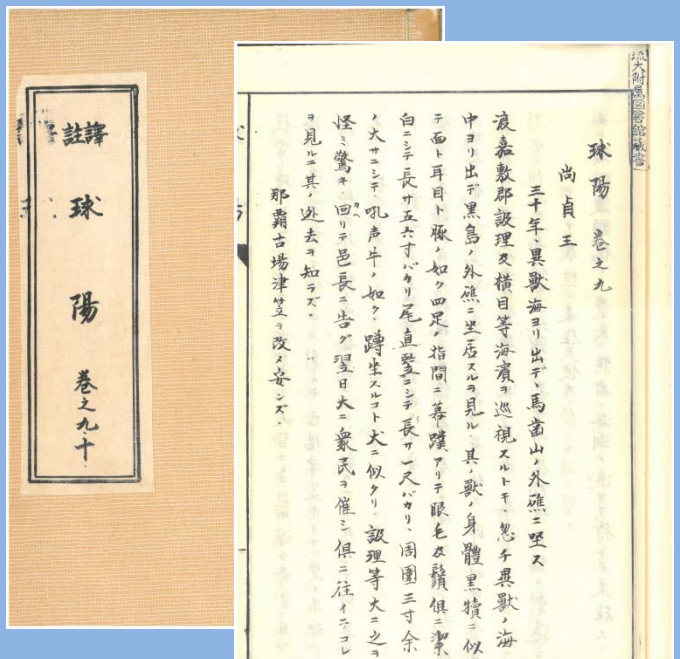 譯註
球陽
巻之九、十
琉大附属図書館蔵書
球陽 巻之九
尚貞王
三十年、異獣海ヨリ出デ、馬歯山ノ外礁ニ坐ス
渡嘉敷郡設理及横目等海濱ヲ巡視スルトキ、忽チ異獣ノ海
中ヨリ出デ黒島ノ外礁ニ坐居スルヲ見ル、其ノ獣ノ身體黒犢ニ似
テ面ト耳目ト豚ノ如ク四足ノ指間ニ幕蹼アリテ眼毛及鬚俱ニ潔
白ニシテ長サ五六寸バカリ尾直竪ニシテ長サ一尺バカリ、周圍三寸余
ノ大サニシテ、吼声牛ノ如ク、蹲坐スルコト犬ニ似タリ、設理等大ニ之ヲ
怪ミ驚キ、回リテ邑長ニ告グ翌日大ニ衆民ヲ催シ俱ニ往イテコレ
ヲ見ルニ其ノ迯去ヲ知ラズ、
那覇古場津笠ヲ改メ安ンズ、